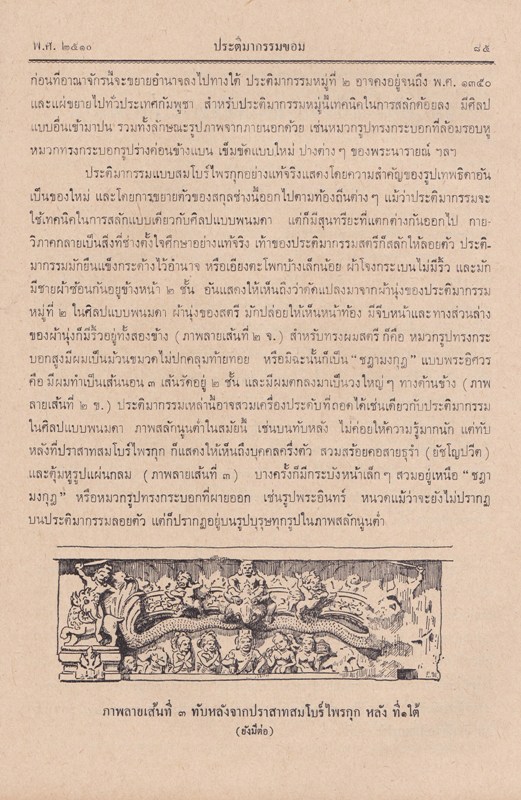 พ.ศ. ๒๕๑๐
ประติมากรรมขอม
๘๕
ก่อนที่อาณาจักรนี้จะขยายอำนาจลงไปทางใต้ ประติมากรรมหมู่ที่ ๒ อาจคงอยู่จนถึง พ.ศ. ๑๓๕๐
และแผ่ขยายไปทั่วประเทศกัมพูชา สำหรับประติมากรรมหมู่นี้เทคนิคในการสลักด้อยลง มีศิลป
แบบอื่นเข้ามาปน รวมทั้งลักษณะรูปภาพจากภายนอกด้วย เช่นหมวกรูปทรงกระบอกที่ล้อมรอบหู
หมวกทรงกระบอกรูปร่างค่อนข้างแบน เข็มขัดแบบใหม่ ปางต่าง ๆ ของพระนารายณ์ ฯลฯ
ประติมากรรมแบบสมโบร์ไพรกุกอย่างแท้จริงแสดงโดยความสำคัญของรูปเทพธิดาอัน
เป็นของใหม่ และโดยการขยายตัวของสกุลช่างนี้ออกไปตามท้องถิ่นต่าง ๆ แม้ว่าประติมากรรมจะ
ใช้เทคนิคในการสลักแบบเดียวกับศิลปแบบพนมดา แต่ก็มีสุนทรียะที่แตกต่างกันออกไป กาย-
วิภาคกลายเป็นสิ่งที่ช่างตั้งใจศึกษาอย่างแท้จริง เท้าของประติมากรรมสตรีก็สลักให้ลอยตัว ประติ-
มากรรมมักยืนแข็งกระด้างไว้อำนาจ หรือเอียงตะโพกบ้างเล็กน้อย ผ้าโจงกระเบนไม่มีริ้ว และมัก
มีชายผ้าซ้อนกันอยู่ข้างหน้า ๒ ชั้น อันแสดงให้เห็นถึงว่าดัดแปลงมาจากผ้านุ่งของประติมากรรม
หมู่ที่ ๒ ในศิลปแบบพนมดา ผ้านุ่งของสตรี มักปล่อยให้เห็นหน้าท้อง มีจีบหน้าและทางส่วนล่าง
ของผ้านุ่งก็มีริ้วอยู่ทั้งสองข้าง (ภาพลายเส้นที่ ๒ จ.) สำหรับทรงผมสตรี ก็คือ หมวกรูปทรงกระ
บอกสูงมีผมเป็นม้วนขมวดไม่ปกคลุมท้ายทอย หรือมิฉะนั้นก็เป็น “ชฎามงกุฎ” แบบพระอิศวร
คือ มีผมทำเป็นเส้นนอน ๓ เส้นรัดอยู่ ๒ ชั้น และมีผมตกลงมาเป็นวงใหญ่ ๆ ทางด้านข้าง (ภาพ
ลายเส้นที่ ๒ ข.) ประติมากรรมเหล่านี้อาจสวมเครื่องประดับที่ถอดได้เช่นเดียวกับประติมากรรม
ในศิลปแบบพนมดา ภาพสลักนูนต่ำในสมัยนี้ เช่นบนทับหลัง ไม่ค่อยให้ความรู้มากนัก แต่ทับ
หลังที่ปราสาทสมโบร์ไพรกุก ก็แสดงให้เห็นถึงบุคคลครึ่งตัว สวมสร้อยคอสายธุรำ (ยัชโญปวีต)
และตุ้มหูรูปแผ่นกลม (ภาพลายเส้นที่ ๓) บางครั้งก็มีกระบังหน้าเล็ก ๆ สวมอยู่เหนือ “ชฎา
มงกุฎ” หรือหมวกรูปทรงกระบอกที่ผายออก เช่นรูปพระอินทร์ หนวดแม้ว่าจะยังไม่ปรากฏ
บนประติมากรรมลอยตัว แต่ก็ปรากฏอยู่บนรูปบุรุษทุกรูปในภาพสลักนูนต่ำ
ภาพลายเส้นที่ ๓ ทับหลังจากปราสาทสมโบร์ไพรกุก หลัง ที่๑ใต้
(ยังมีต่อ)